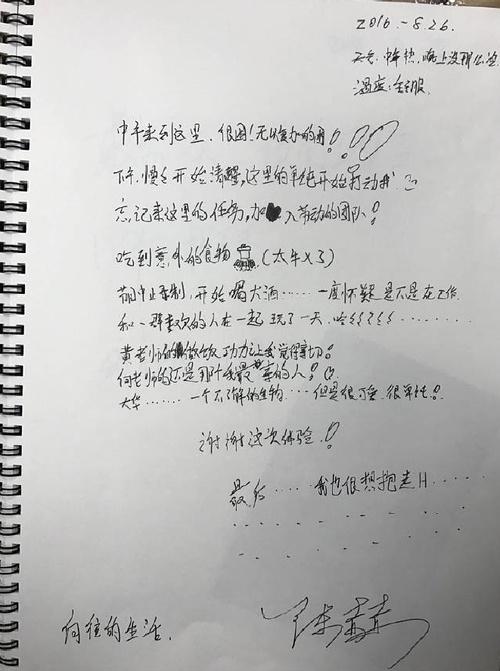 2016.-8.26.
天气:中午热,晚上没那么
温度:舒服.
中午来到这里.很困!无以复加的困!
下午.慢慢开始清醒,这里的单纯开始打动我
忘记来这里的任务,加入劳动的团队!
吃到意外的食物 (太牛X了)
节目中止录制,开始喝大酒……一度怀疑是不是在工作.
和一群喜欢的人在一起玩了一天.哈
黄老师的做饭功力让我觉得亲切!
何老师的还是那个我最喜的人!
大华……一个不了解的生物…但是很可爱.很单纯!
谢谢这次体验!
最后……我也很想抱走H…
向往的生活. 陈赫